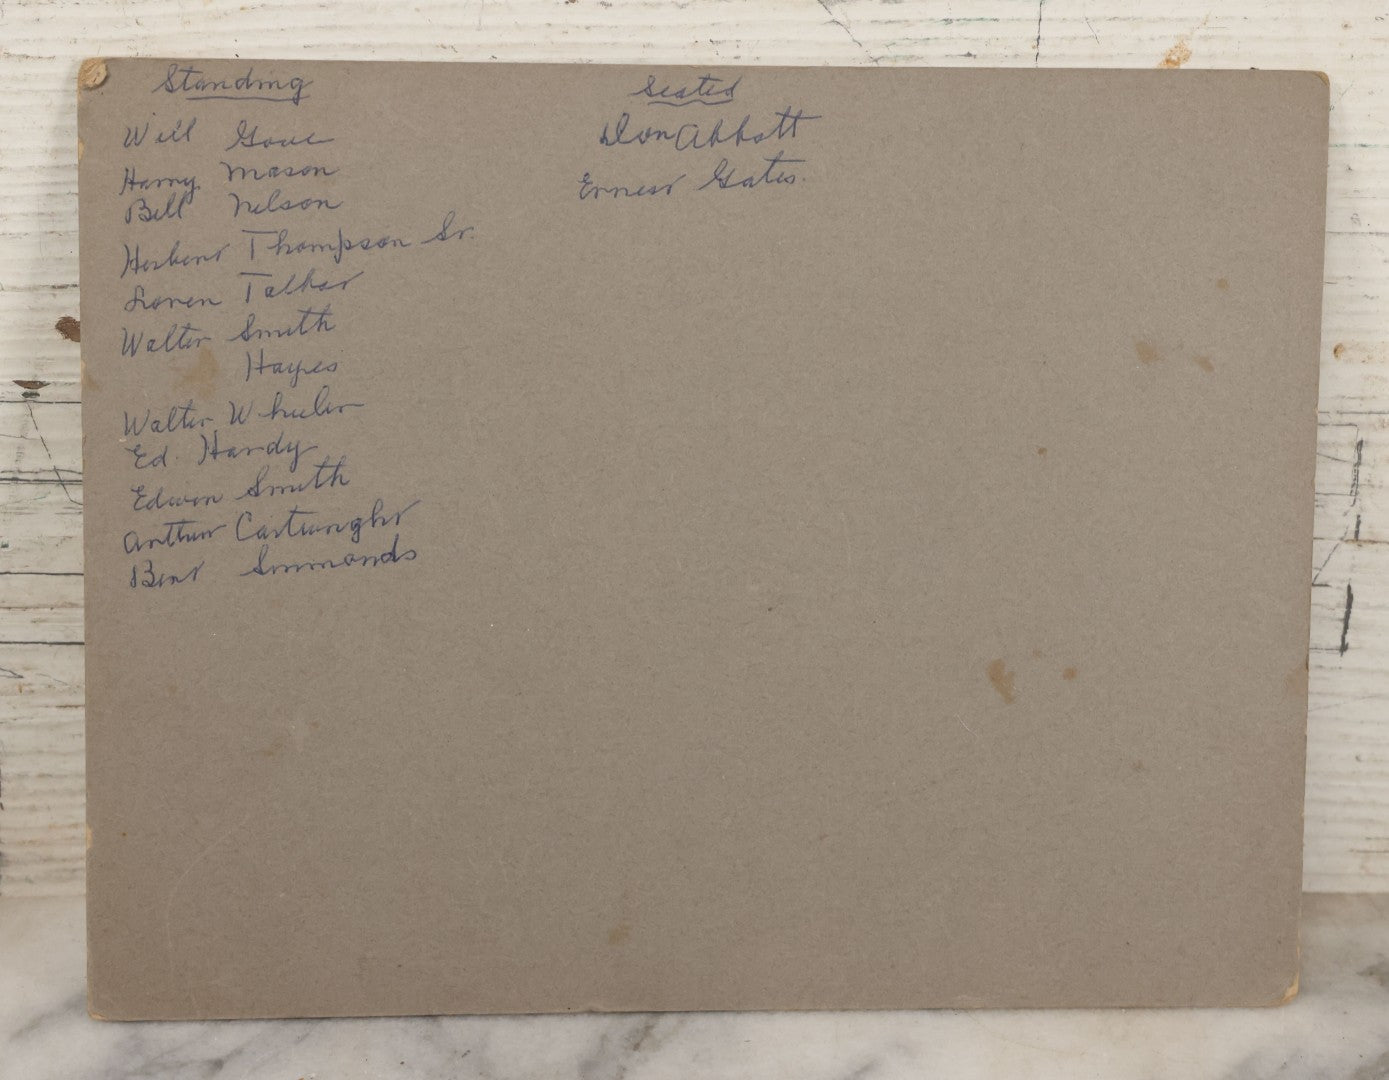 Standing
Will Gove
Harry Mason
Bill Nelson
Herbert Thompson Sr.
Loren
Walter Smith
Hayes
Walter Wheeler
Ed. Hardy
Edwin Smith
Arthur Cartwright
Bert Simmonds
Seated
Don Abbott
Ernest Gates.